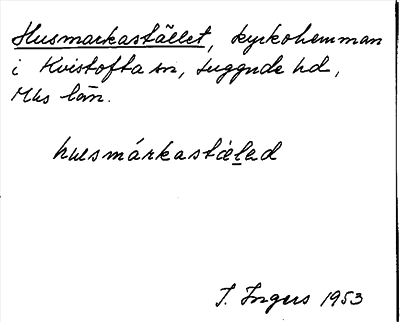 Husmarkastället, kyrkohemman
i Kvistofta sn, Luggude hd,
Mhs län.
husmárkastälad
I. Ingers 1953